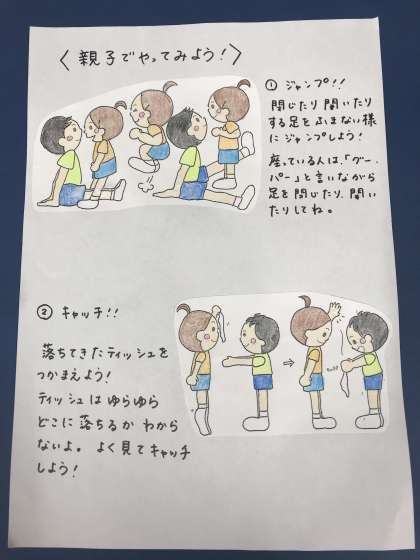 〈親子でやってみよう!〉
① ジャンプ!!
閉じたり開いたり
する足をふまない様
にジャンプしよう!
座っている人は、「グー、
パー」と言いながら
足を閉じたり、開い
たりしてね。
② キャッチ!!
落ちてきたティッシュを
つかまえよう!
ティッシュはゆらゆら
どこに落ちるかわから
ないよ。よく見てキャッチ
しよう!